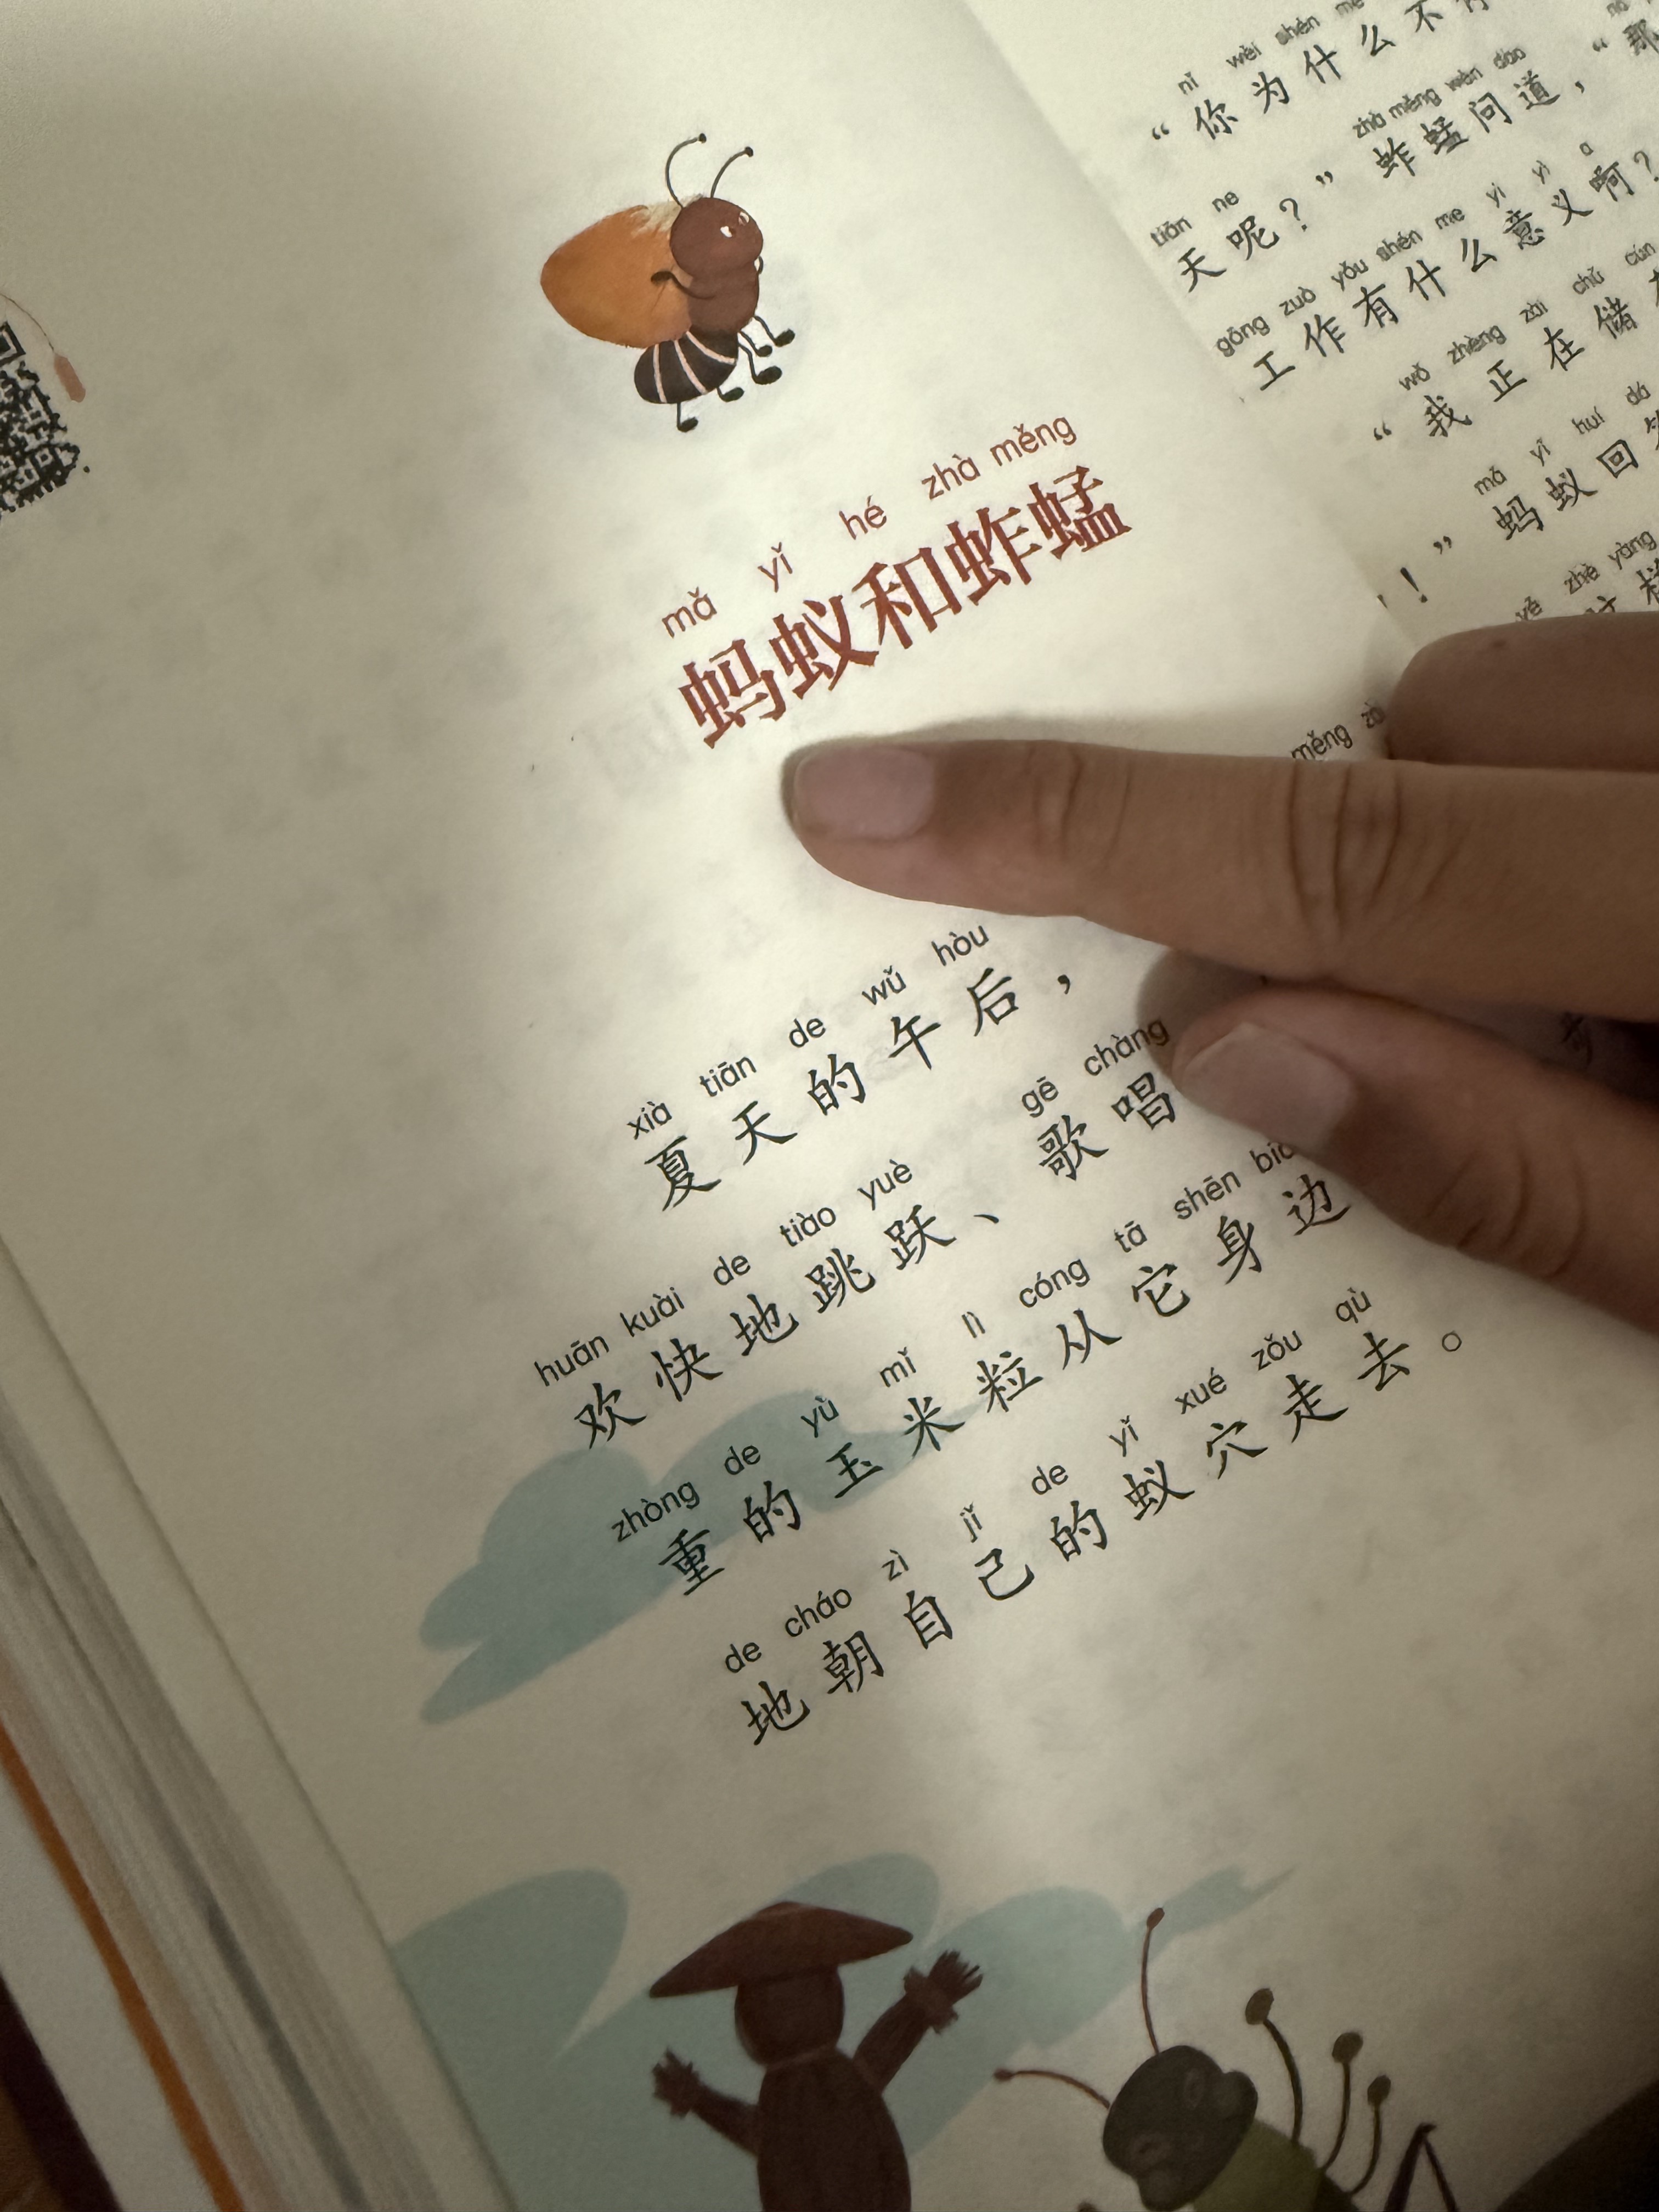 mǎ yǐ hé zhà měng
蚂蚁和蚱蜢
xià tiān de wǔ hòu
夏天的午后，
huān kuài de tiào yuè gē chàng
欢快地跳跃、歌唱
zhòng de yù mǐ lì cóng tā shēn
重的玉米粒从它身边
de cháo zì jǐ de yǐ xué zǒu qù
地朝自己的蚁穴走去。
nǐ wèi shén me
“你为什么不
tiān ne zhà měng wèn dào
天呢？”蚱蜢问道，“那
gōng zuò yǒu shén me yì yì a
工作有什么意义啊？
wǒ zhèng zài chǔ cún
“我正在储
mǎ yǐ huí dá
！”蚂蚁回
zhè yàng
měng